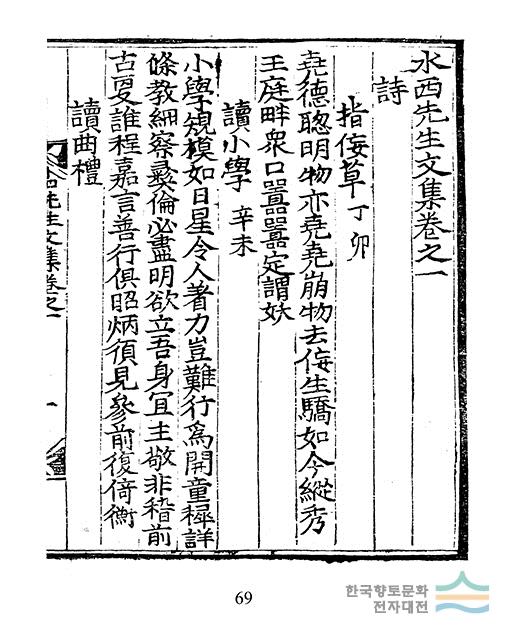 水西先生文集卷之一
詩
指侫草 丁卯
堯德聰明物亦堯堯崩物去侫生驕如今縱秀
王庭畔衆口囂囂定謂妖
讀小學 辛未
小學規模如日星令人著力豈難行爲開童穉詳
條教細察彛倫必盡明欲立吾身冝主敬非稽前
古夏誰程嘉言善行俱昭炳須見參前復倚衡
讀曲禮
先生文集卷之一
한국향토문화
전자대전
69